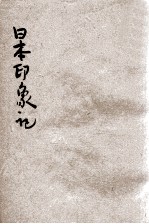 日本印象记